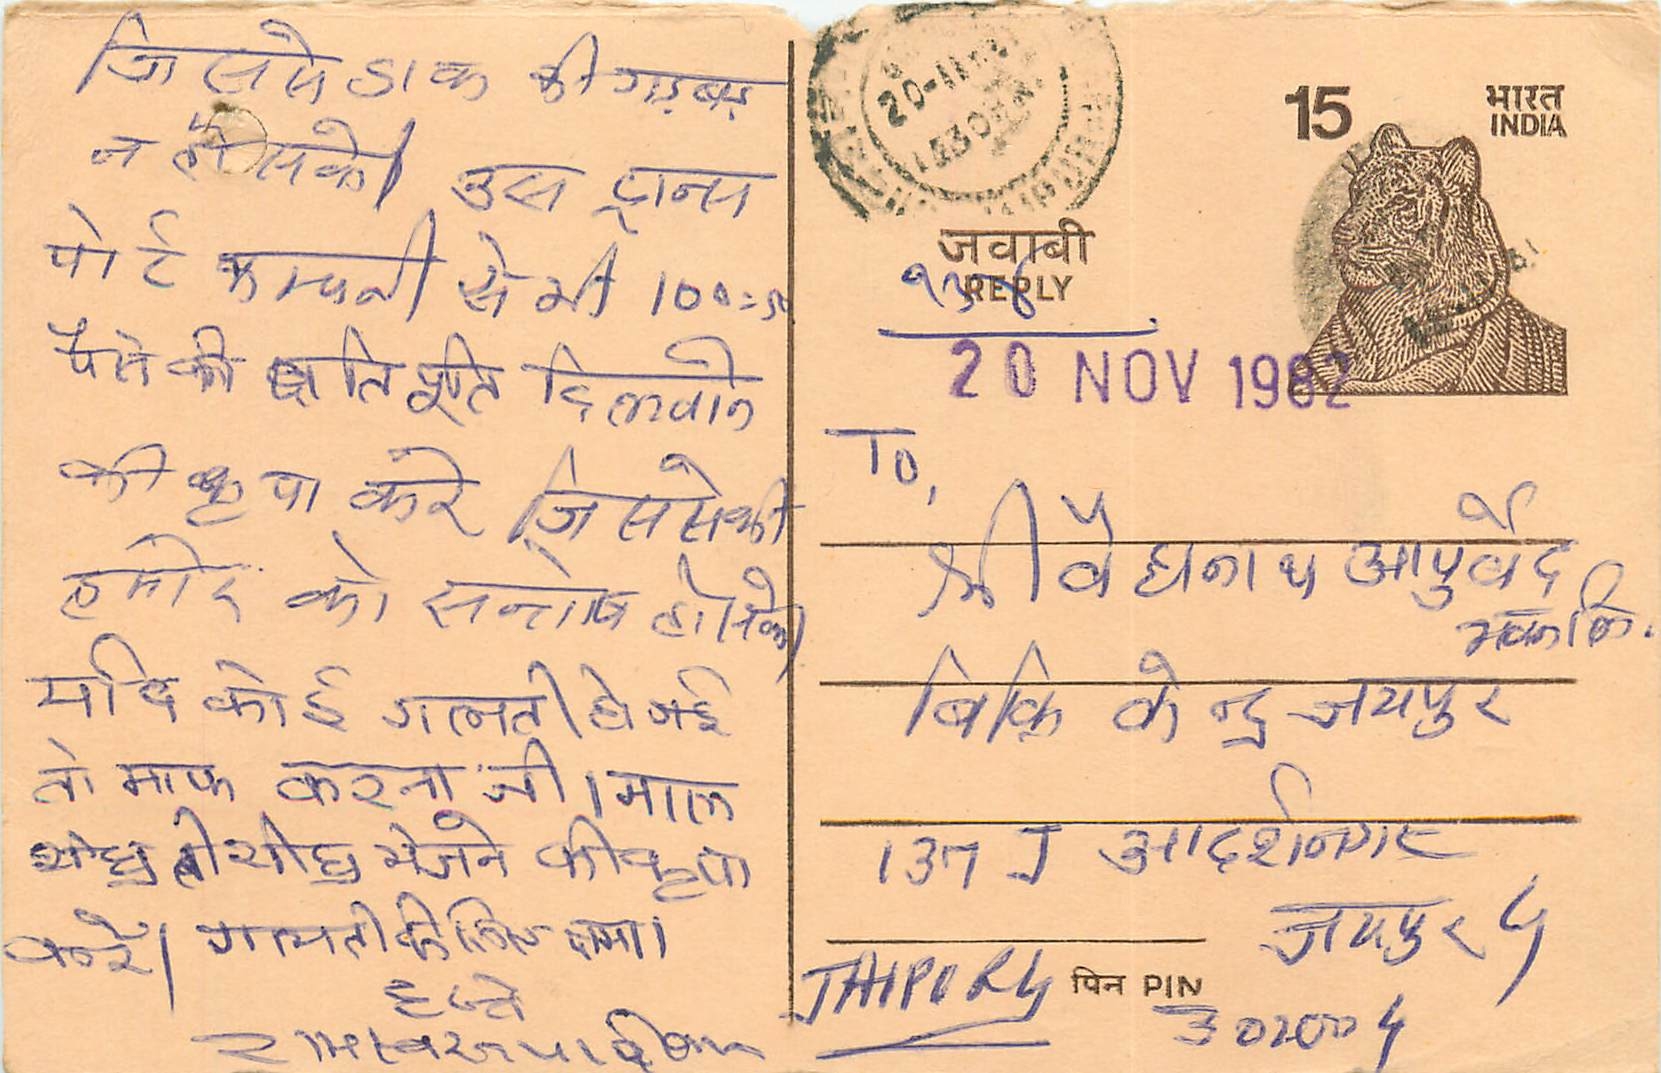 जिससे डाक की गड़बड़
न हो सके। उस ट्रान्स
पोर्ट कम्पनी से भी 100=50
पैसे की क्षति पूर्ति दिलवाने
की कृपा करे जिससे की
हमारे को सन्तोष हो सके।
यदि कोई गलती हो गई
तो माफ करना जी। माल
शीघ्र ही शीघ्र भेजने की कृपा
करे। गलती के लिए क्षमा।
20-11
1530
15
भारत
INDIA
जवाबी
REPLY
20 NOV 1982
To,
श्री वैद्यनाथ आयुर्वेद
भवन लि.
बिक्रि केन्द्र जयपुर
137 J आदर्शनगर
जयपुर 4
JAIPUR 4
पिन PIN
302004